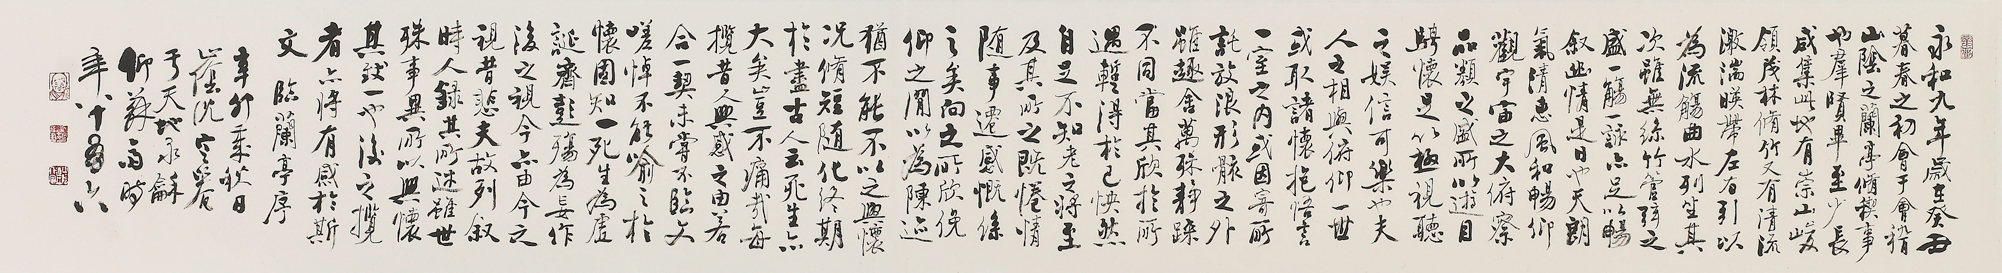 永和九年歲在癸丑
暮春之初會于會稽
山陰之蘭亭脩稧事
也羣賢畢至少長
咸集此地有崇山峻
領茂林脩竹又有清流
激湍暎帶左右引以
為流觴曲水列坐其
次雖無絲竹管弦之
盛一觴一詠亦足以暢
叙幽情是日也天朗
氣清惠風和暢仰
觀宇宙之大俯察
品類之盛所以遊目
騁懷足以極視聽
之娛信可樂也夫
人之相與俯仰一世
或取諸懷抱悟言
一室之内或因寄所
託放浪形骸之外
雖趣舍萬殊靜躁
不同當其欣於所
遇暫得於己怏然
自足不知老之將至
及其所之既惓情
随事遷感慨係
之矣向之所欣俛
仰之閒以為陳迹
猶不能不以之興懷
况脩短随化終期
於盡古人云死生亦
大矣豈不痛哉每
攬昔人興感之由若
合一契未嘗不臨文
嗟悼不能喻之於
懷固知一死生為虛
誕齊彭殤為妄作
後之視今亦由今之
視昔悲夫故列叙
時人録其所述雖世
殊事異所以興懷
其致一也後之攬
者亦將有感於斯
文 臨蘭亭序
辛卯 秋日
沈定菴
于天地永龢
仰蘇 時
年八十 六